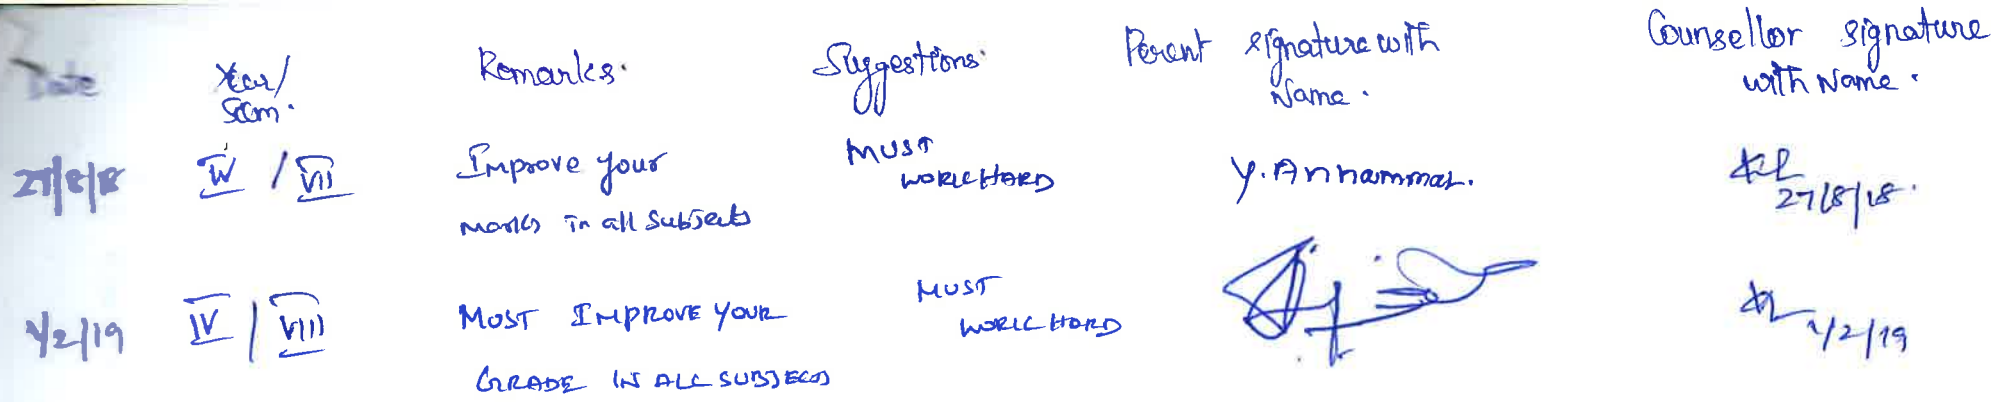 Date Year/ Sem. Remarks. Suggestions. Parent signature with Name. Counsellor signature with Name.
27/8/18 IV / VII Improve your marks in all subjects MUST WORK HARD Y. Annammal. 27/8/18.
1/2/19 IV / VIII MUST IMPROVE YOUR GRADE IN ALL SUBJECTS MUST WORK HARD 1/2/19